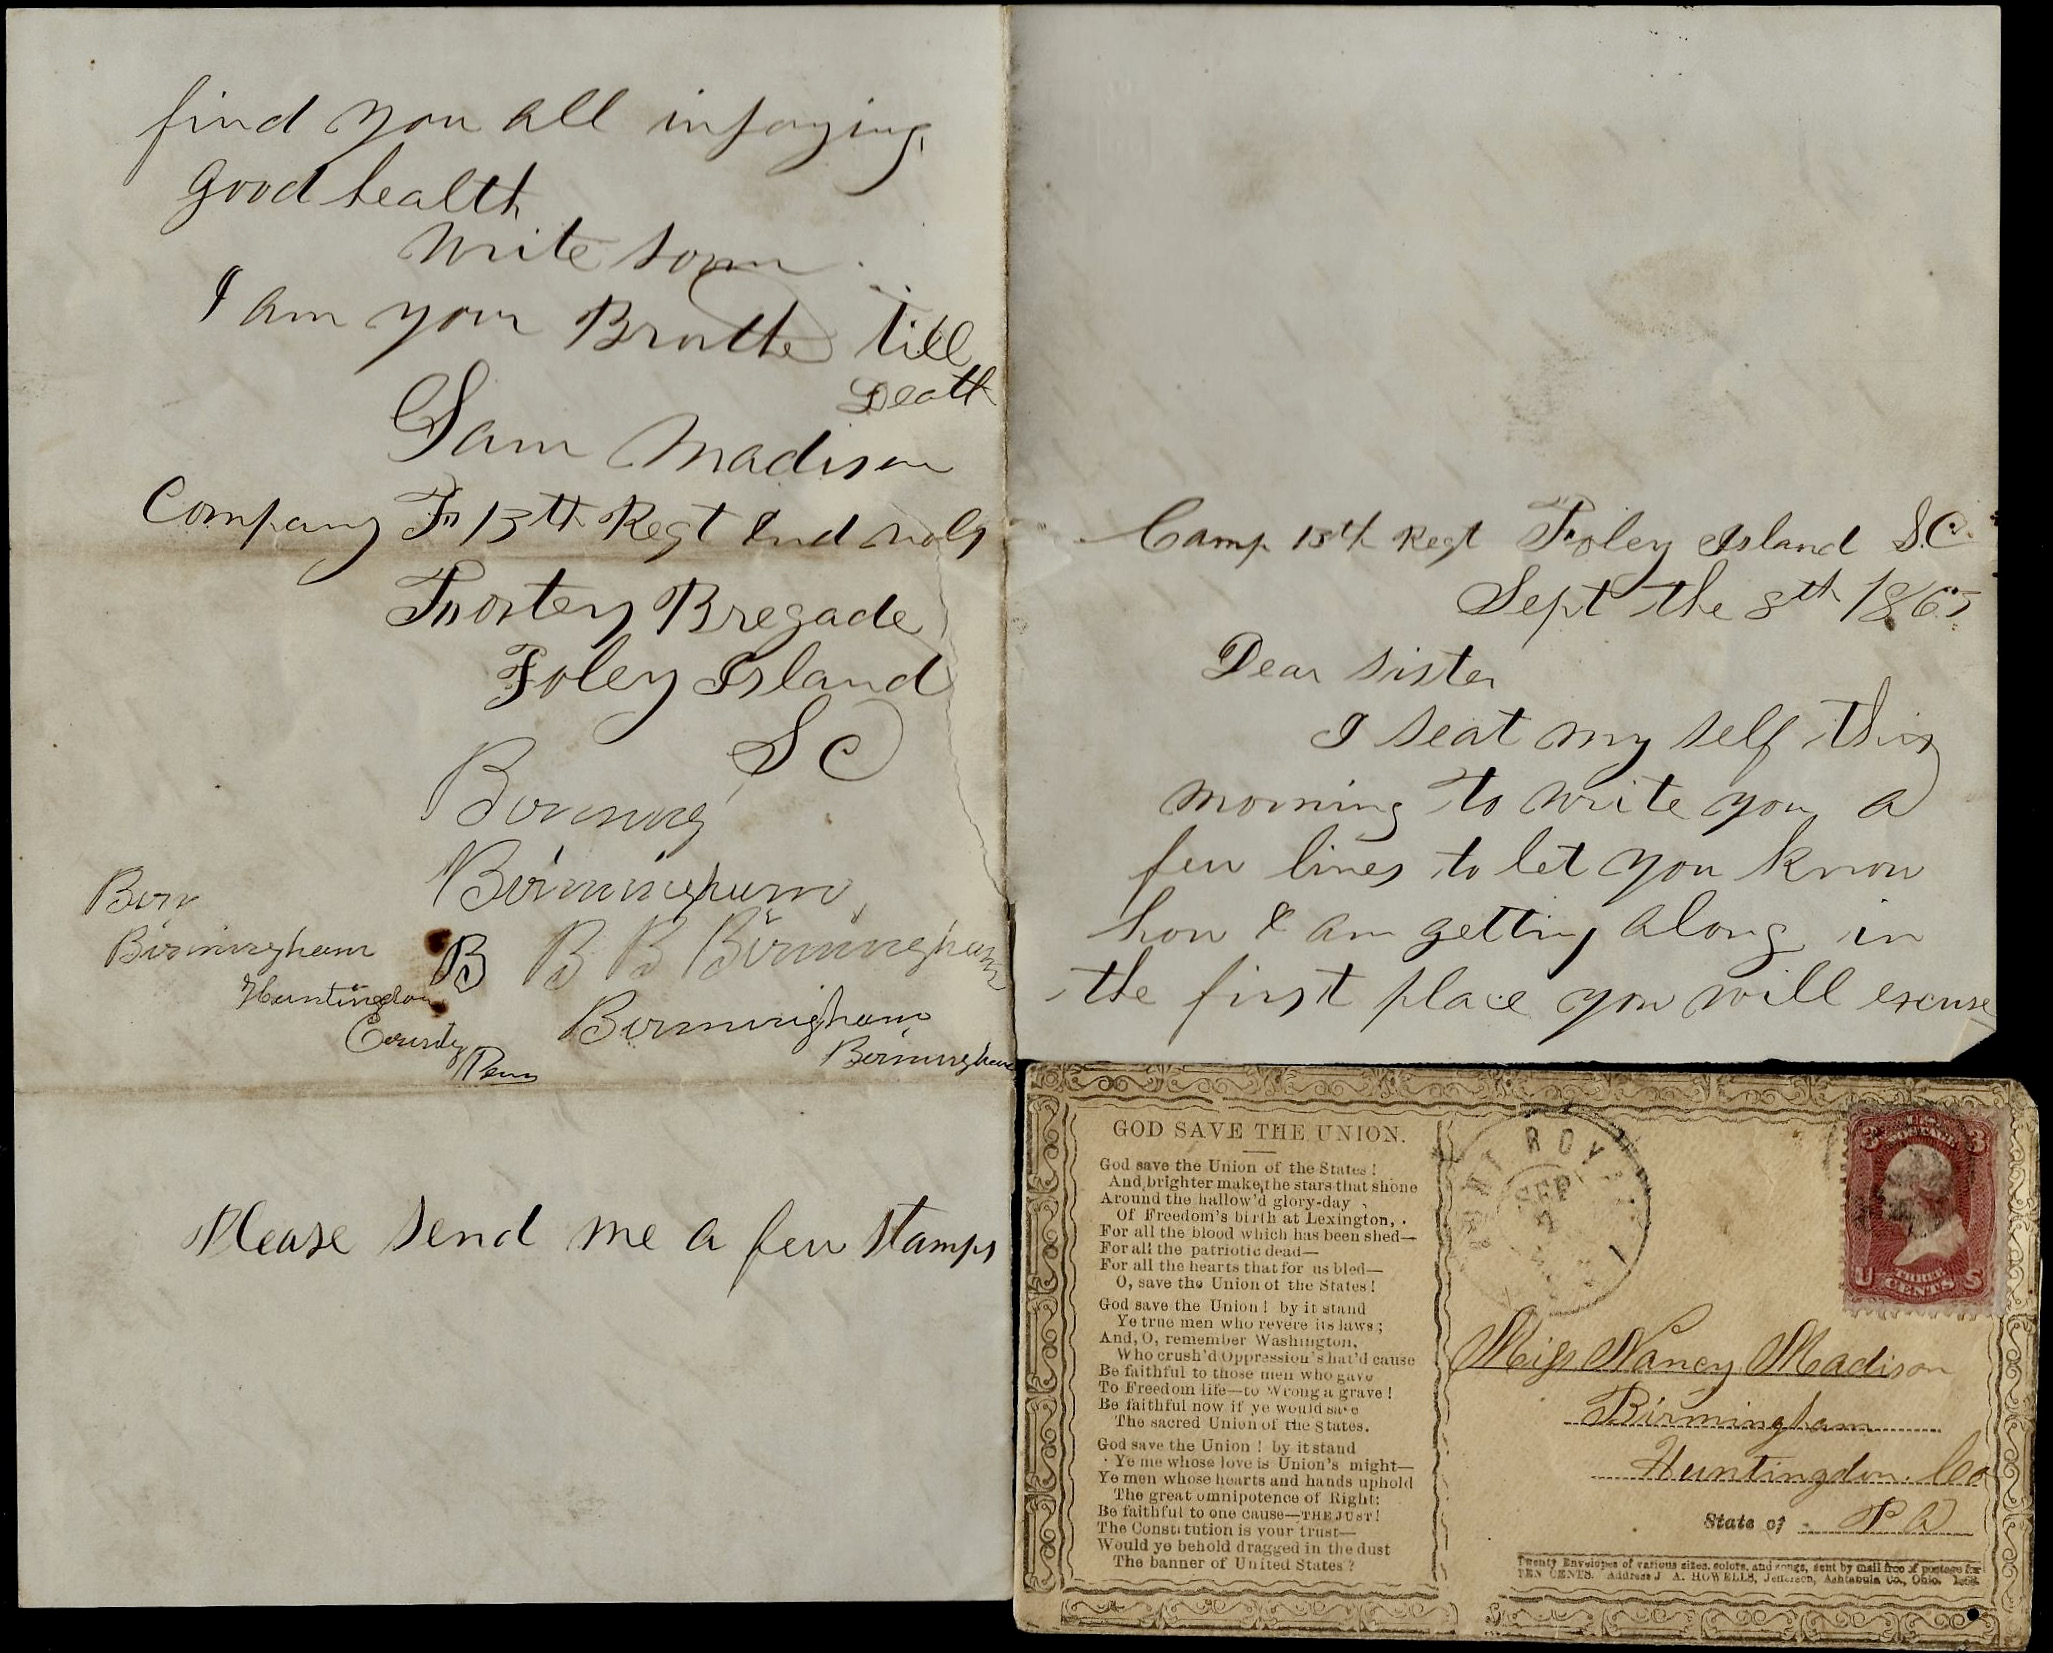 find you all injoying
good health
write soon
I am your Brothe till
Death
Sam Madison
Company F 13th Regt Ind vols
Fostery Bregade
Foley Island
S C
Birming
Birmingham
Birm
Birmingham
B B B Birmingham
Huntingdon
County
Penn
Birmingham
Birmingham
Please send me a few stamps
Camp 13th Regt Foley Island S.C.
Sept the 8th 1863
Dear sister
I seat my self this
morning to write you a
few lines to let you know
how I am getting along in
the first place you will excuse
GOD SAVE THE UNION.
God save the Union of the States!
And brighter make the stars that shone
Around the hallow'd glory-day
Of Freedom's birth at Lexington,
For all the blood which has been shed—
For all the patriotic dead—
For all the hearts that for us bled—
O, save the Union of the States!
God save the Union! by it stand
Ye true men who revere its laws;
And, O, remember Washington,
Who crush'd Oppression's hat'd cause
Be faithful to those men who gave
To Freedom life—to Wrong a grave!
Be faithful now if ye would save
The sacred Union of the States.
God save the Union! by it stand
Ye me whose love is Union's might—
Ye men whose hearts and hands uphold
The great omnipotence of Right:
Be faithful to one cause—THE JUST!
The Constitution is your trust—
Would ye behold dragged in the dust
The banner of United States?
ROYAL
SEP
U.S.
POSTAGE
3 3
U THREE S
CENTS
Miss Nancy Madison
Birmingham
Huntingdon. Co
State of PA
Twenty Envelopes of various sizes, colors, and songs, sent by mail free of postage for
TEN CENTS. Address J. A. HOWELLS, Jefferson, Ashtabula Co., Ohio.